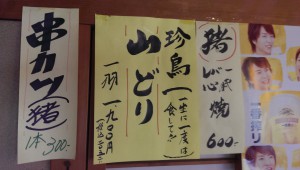 串カツ(猪)
1本300-
珍鳥
一生に一度は
食してみ
山どり
一羽 一九〇〇円
猪
心焼
600-
一番搾り